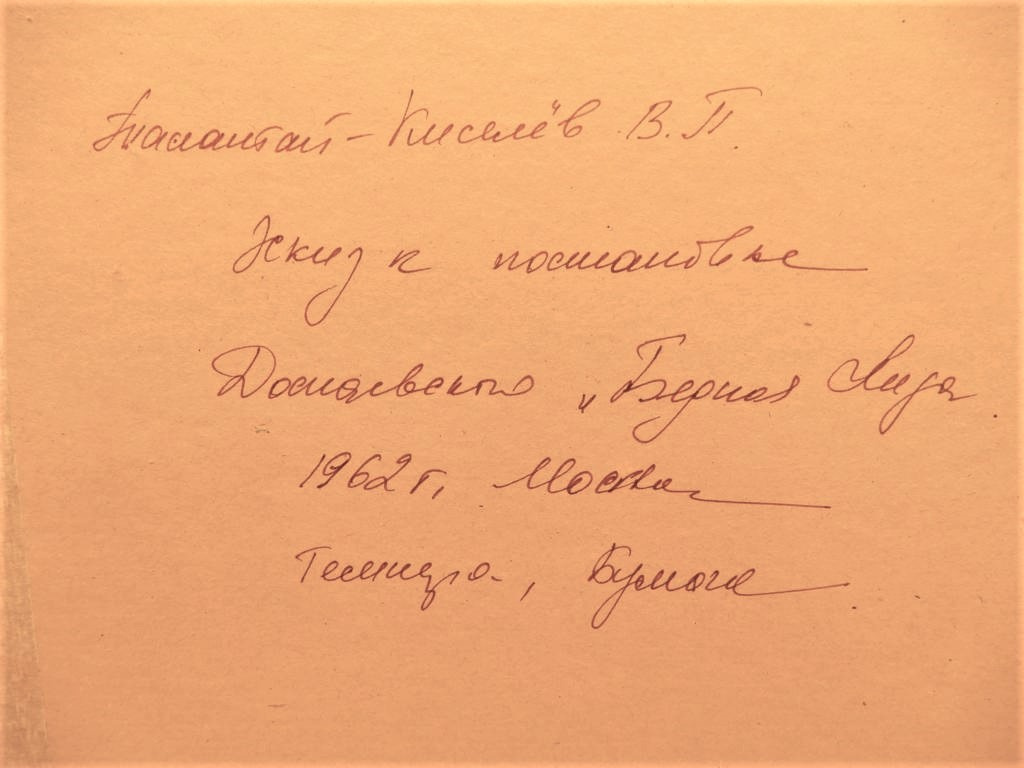 Киселёв В. П.
Эскиз к постановке
Достоевского „Бедная Лиза
1962 г., Москва
Темпера, Бумага